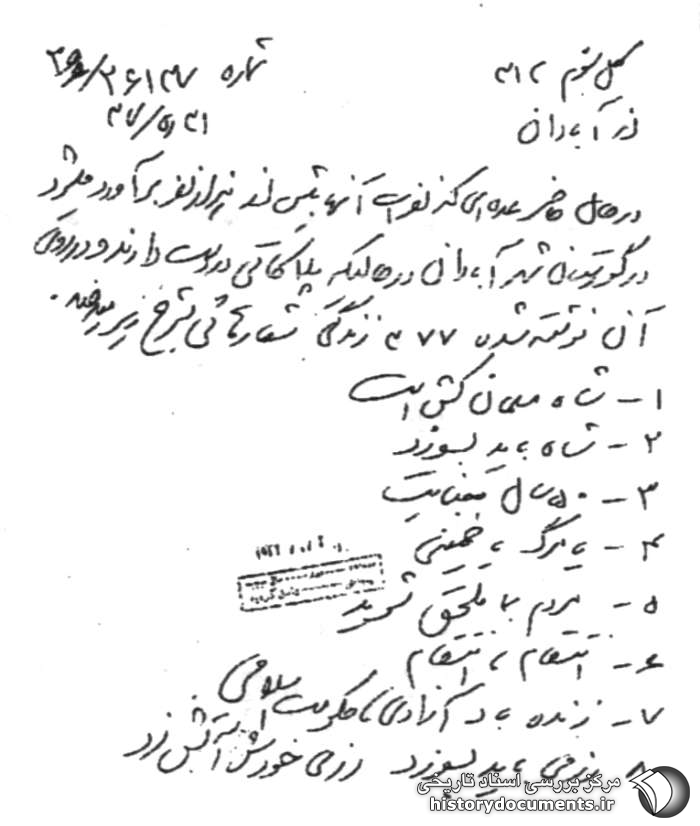 به کل سوم ۳۱۲
شماره
از آبادان
در حال حاضر عده‌ای که نفرات آنها بیش از هزار نفر برآورد میشود
در گورستان شهر آبادان در حالیکه پلاکاتی در دست دارند و در روی
آن نوشته شده ۳۷۷ زندگی شعارهائی بشرح زیر میدهند.
۱ – شاه مسلمان کش است
۲ – شاه باید بسوزد
۳ – ۵۰ سال جنایت
۴ – یا مرگ یا خمینی
۵ – مردم بما ملحق شوید
۶ – انتقام، انتقام
۷ – زنده باد آزادی تا حکومت اسلامی
۸ رزمی باید بسوزد رزمی خودش آتش زد
مرکز بررسی اسناد تاریخی
historydocuments.ir